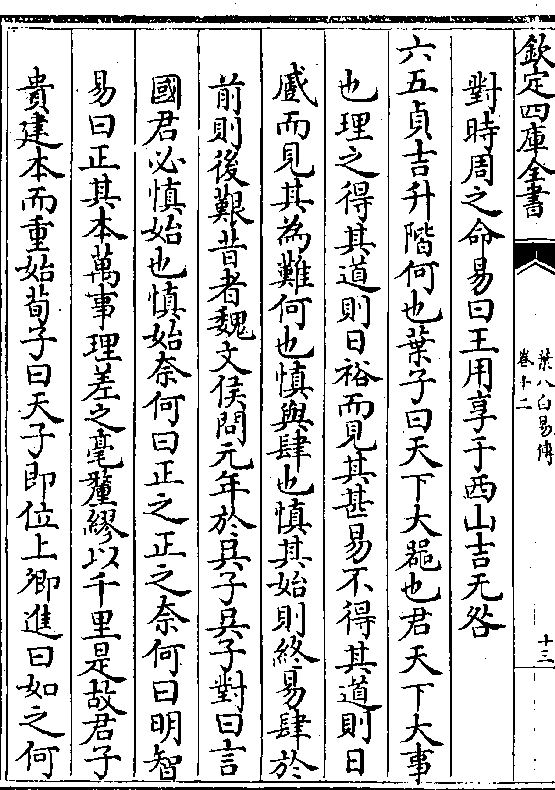 欽定四庫全書
葉八白易傳
卷十二
十三
對時周之命易曰王用享于西山吉无咎
六五貞吉升階何也葉子曰天下大器也君天下大事
也理之得其道則日裕而見其甚易不得其道則日
蹙而見其為難何也慎與肆也慎其始則終易肆於
前則後艱昔者魏文侯問元年於吳子吳子對曰言
國君必慎始也慎始奈何曰正之正之奈何曰明智
易曰正其本萬事理差之毫釐繆以千里是故君子
貴建本而重始荀子曰天子即位上卿進曰如之何